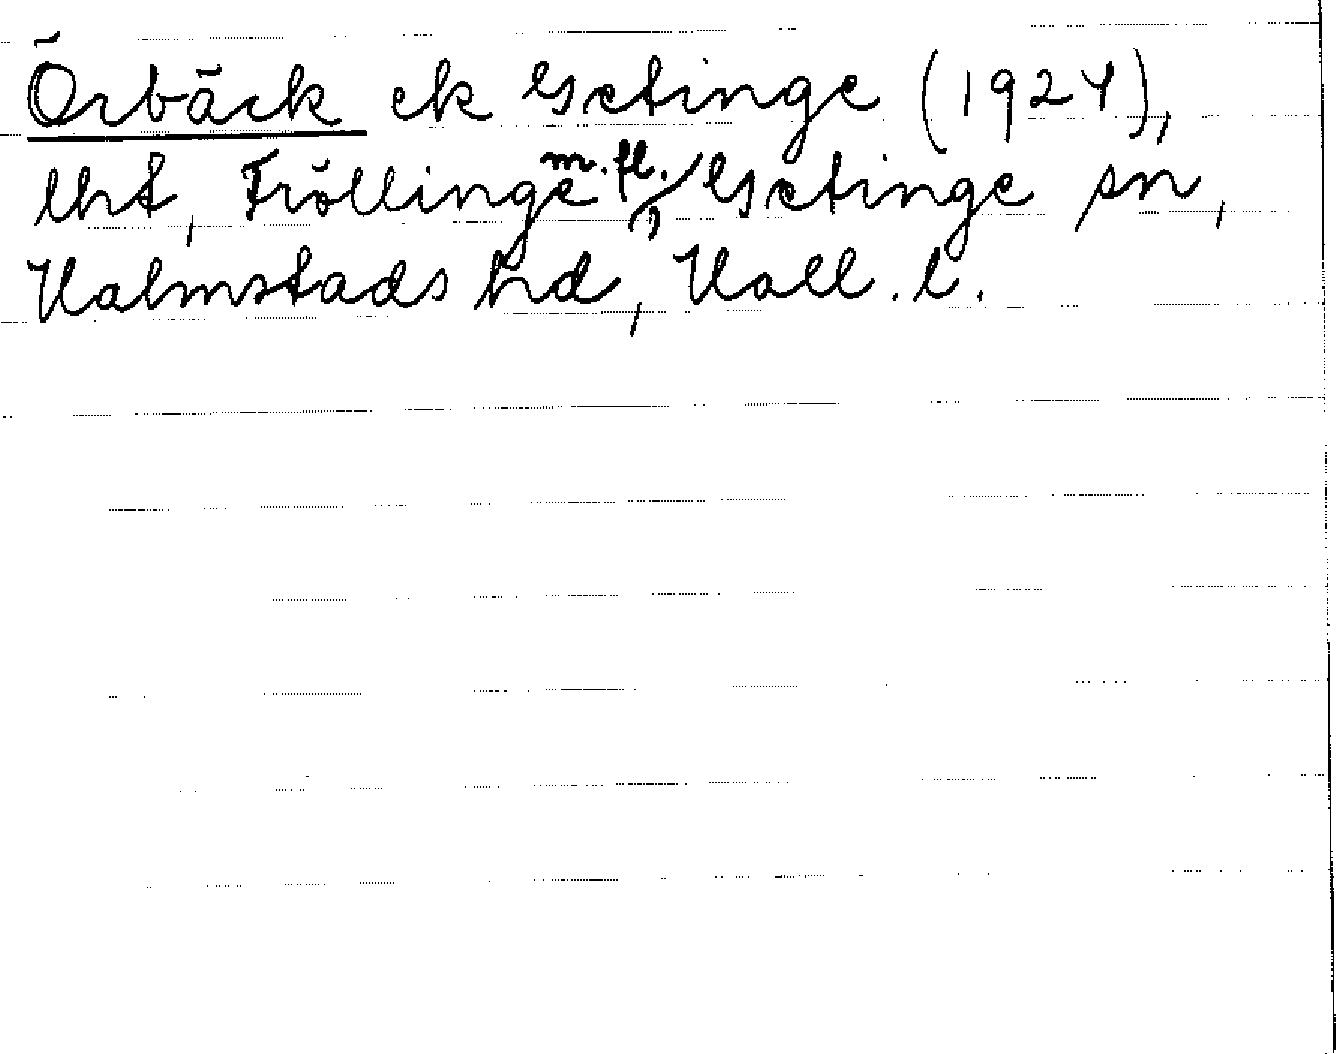 Örbäck ek Getinge (1924),
lht, Fröllinge m. fl., Getinge sn,
Halmstads hd, Hall. l.